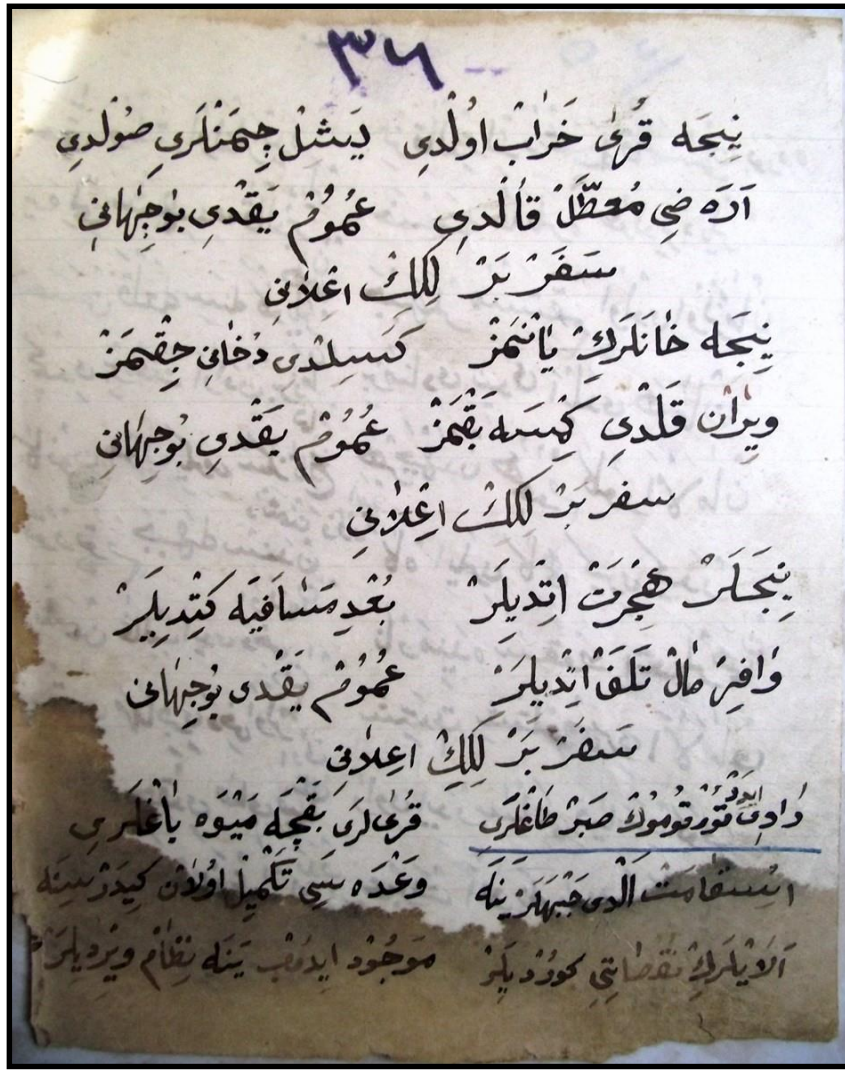 ٣٦
نِيجَه قُرىٰ خَرَابْ اوُلْدِى يَشِلْ چِمَنْلَرِى صُولْدِى
آرَه ضِى مُعطَّلْ قَالْدِى عُمُومْ يَقْدِى بُوجِهَانِى
سَفَرْ بَرْ لِكِكْ اعْلَانِى
نِيجَه خَانَلَرِكْ يَانْمَزْ كَسِلْدِى دُخَانِ چِقْمَزْ
وِيرَان قَلْدِى كِمْسَه بَقْمَزْ عُمُومْ يَقْدِى بُوجِهَانِى
سفر بَرْ لِكِكْ اعْلَانِى
نِيجَلَرْ هِجْرَتْ اتِدْيلَرْ بُعْدِ مَسَافَيَه كِتْدِيلَرْ
وَافِرْ مَالْ تَلَفْ اتِدْيلَرْ عُمُومْ يَقْدِى بُوجِهَانِى
سَفَرْ بَرْ لِكِكْ اعِلَانِى
صَبرْ طَاغْلَرِى قُرىٰ لَرِى بَغْچَه مَيْوَه بَاغْلَرِى
اسْتِقَامَتْ آلْدِى جَبْهَلَرْينَه وَعْدَه سِى تَكْمِيلْ اوُلَانْ كِيدَرْ سِينَه
آلَايْلَرِكْ نُقْصَانِتِى كورْدِيلَرْ مَوْجُودْ ايدُوبْ يَنَه نِظَامْ وِيرْدِيلَرْ